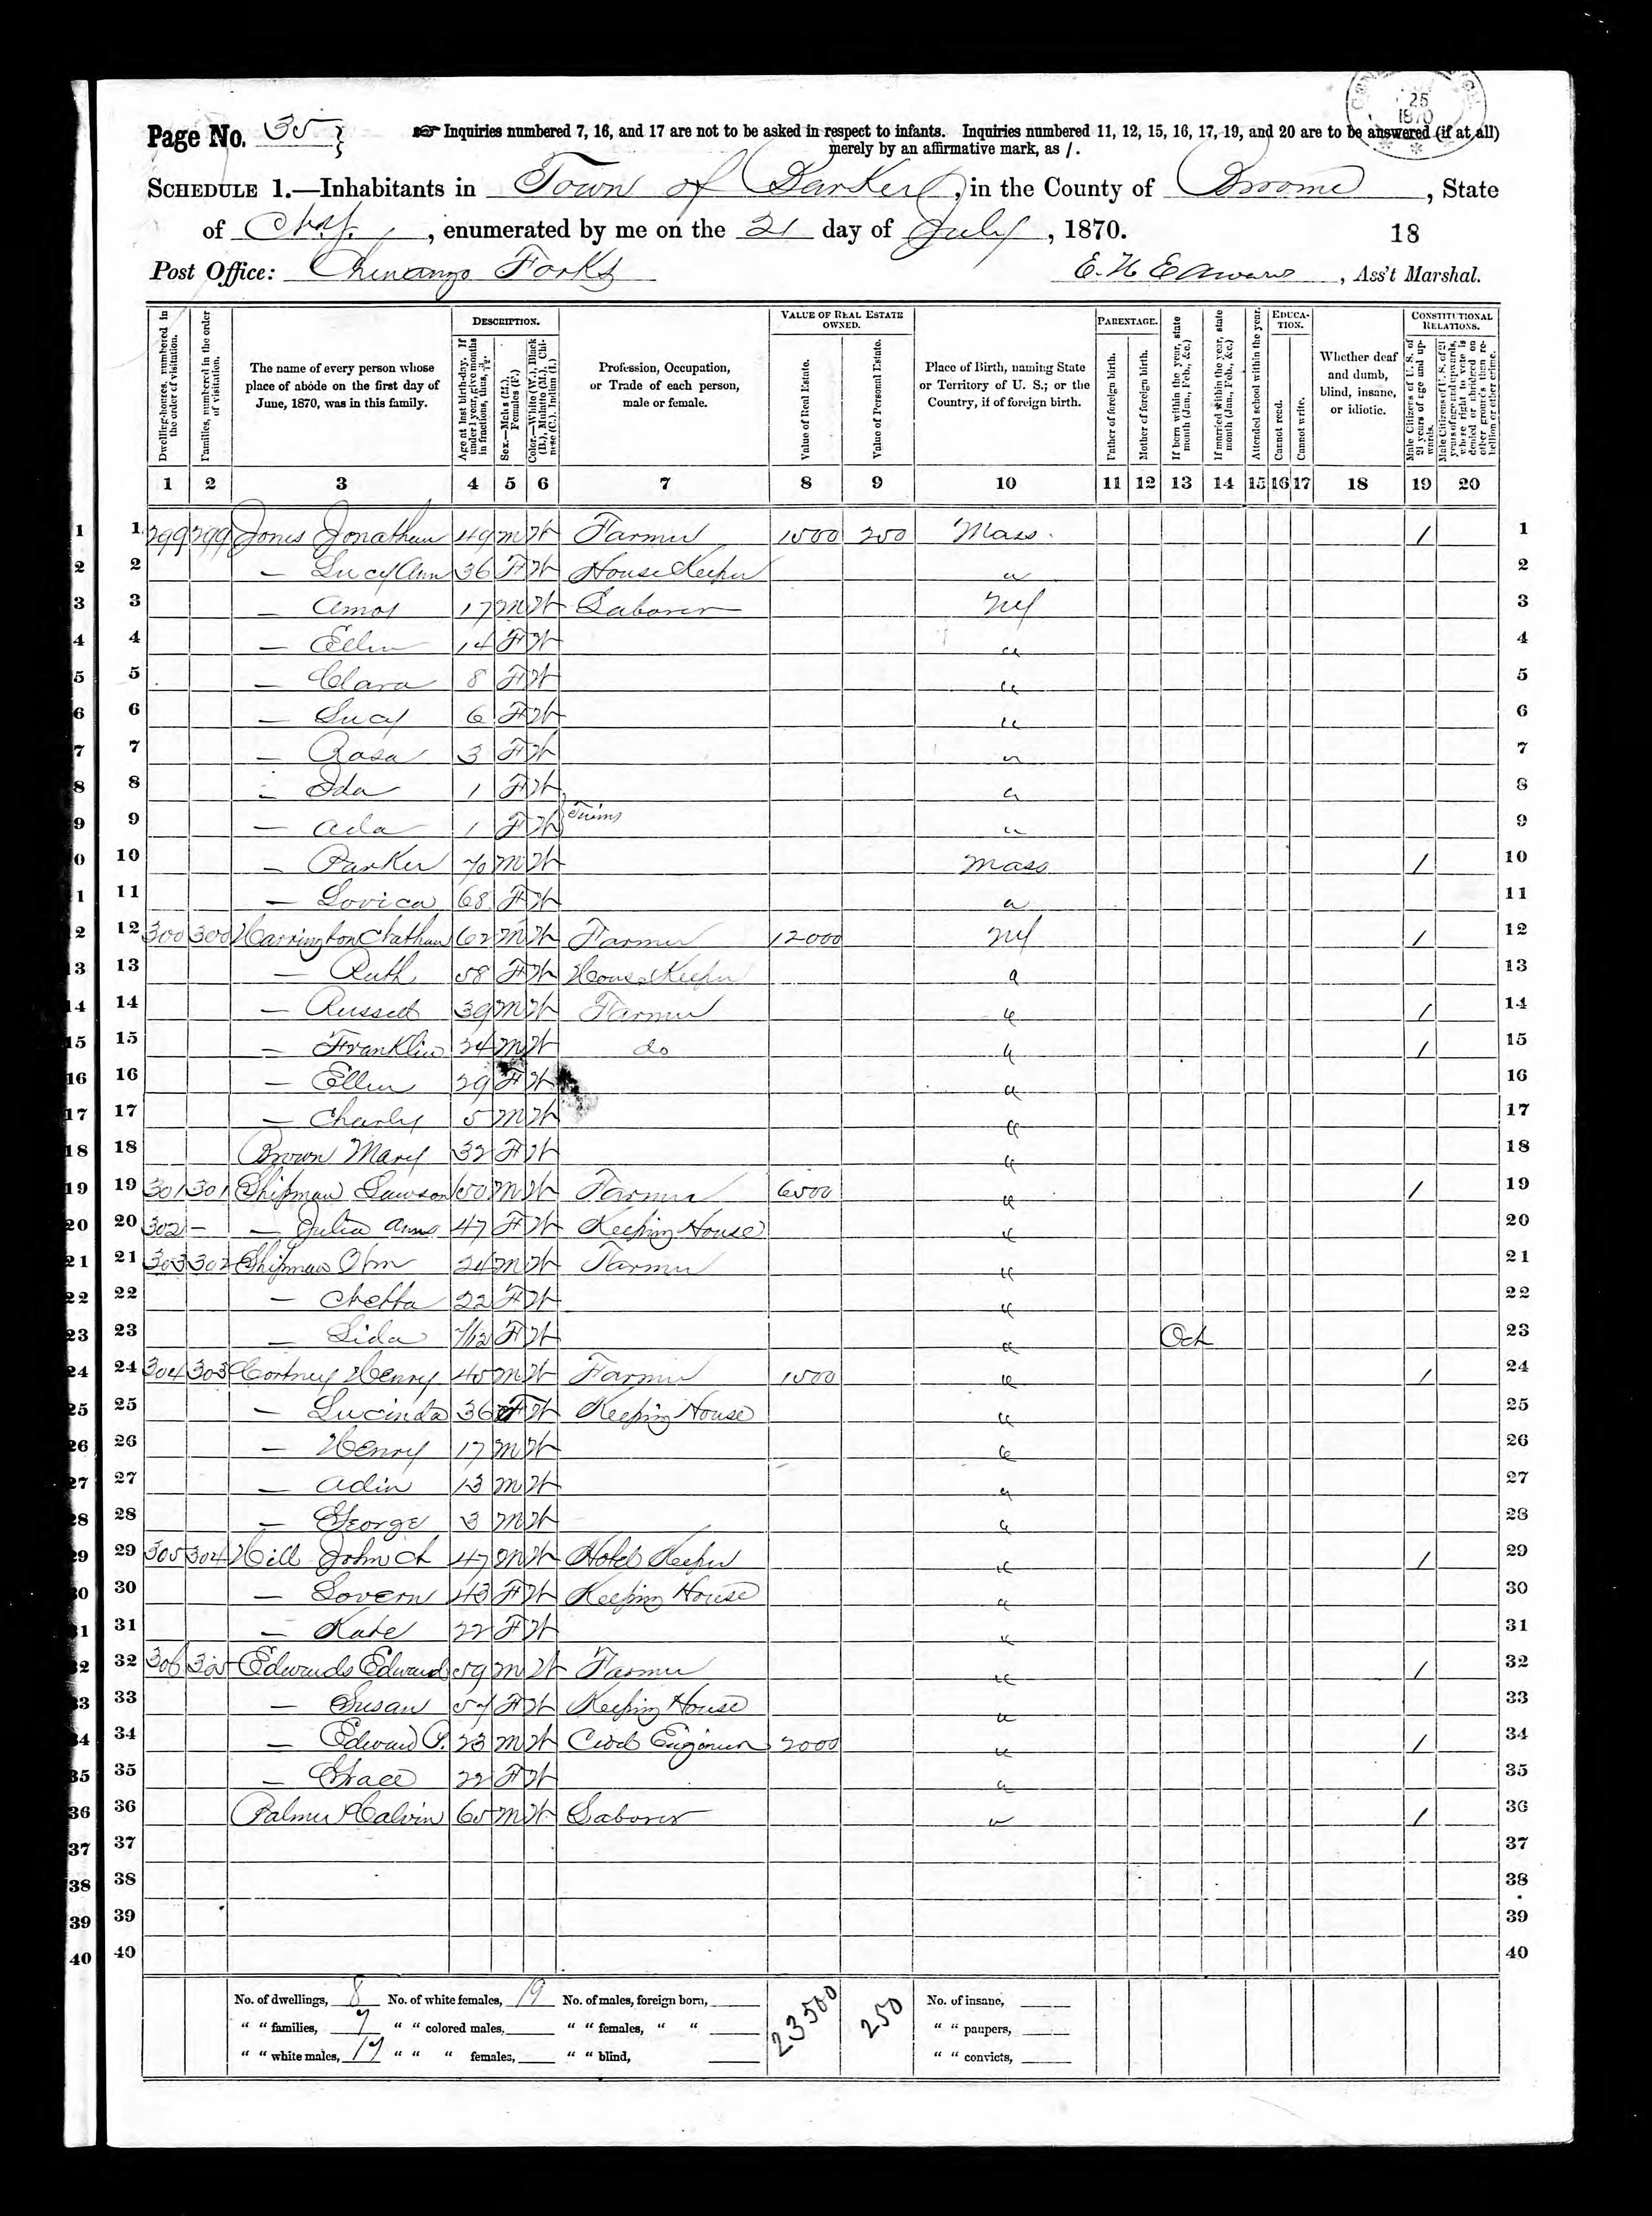 Page No. 35
Inquiries numbered 7, 16, and 17 are not to be asked in respect to infants. Inquiries numbered 11, 12, 15, 16, 17, 19, and 20 are to be answered (if at all)
merely by an affirmative mark, as /.
25
1870
SCHEDULE 1.—Inhabitants in Town of Barker, in the County of Broome, State
of N.Y., enumerated by me on the 21 day of July, 1870.
18
Post Office: Chenango Forks
E. H. Edwards, Ass't Marshal.
Dwelling-houses, numbered in the order of visitation.
Families, numbered in the order of visitation.
The name of every person whose place of abode on the first day of June, 1870, was in this family.
DESCRIPTION.
Age at last birth-day. If under 1 year, give months in fractions, thus, 3/12.
Sex.—Males (M.), Females (F.)
Color.—White (W.), Black (B.), Mulatto (M.), Chinese (C.), Indian (I.)
Profession, Occupation, or Trade of each person, male or female.
VALUE OF REAL ESTATE OWNED.
Value of Real Estate.
Value of Personal Estate.
Place of Birth, naming State or Territory of U. S.; or the Country, if of foreign birth.
PARENTAGE.
Father of foreign birth.
Mother of foreign birth.
If born within the year, state month (Jan., Feb., &c.)
If married within the year, state month (Jan., Feb., &c.)
Attended school within the year.
EDUCATION.
Cannot read.
Cannot write.
Whether deaf and dumb, blind, insane, or idiotic.
CONSTITUTIONAL RELATIONS.
Male Citizens of U. S. of 21 years of age and upwards.
Male Citizens of U. S. of 21 years of age and upwards, where right to vote is denied or abridged on other grounds than rebellion or other crime.
1 2 3 4 5 6 7 8 9 10 11 12 13 14 15 16 17 18 19 20
1 1 299 299 Jones Jonathan 49 M W Farmer 1500 250 Mass. / 1
2 2 — Lucy Ann 36 F W House Keeper " 2
3 3 — Amos 17 M W Laborer NY 3
4 4 — Ellen 14 F W " 4
5 5 — Clara 8 F W " 5
6 6 — Lucy 6 F W " 6
7 7 — Rosa 3 F W " 7
8 8 — Ida 1 F W " 8
9 9 — Ada 1 F W } Twins " 9
0 10 — Parker 70 M W Mass / 10
1 11 — Lovica 68 F W " 11
2 12 300 300 Harrington Nathan 62 M W Farmer 12000 NY / 12
13 13 — Ruth 58 F W House Keeper " 13
14 14 — Russell 39 M W Farmer " / 14
15 15 — Franklin 24 M W do " / 15
16 16 — Ellen 29 F W " 16
17 17 — Charly 5 M W " 17
18 18 Brown Mary 32 F W " 18
19 19 301 301 Shipman Lawson 50 M W Farmer 6500 " / 19
20 20 302 – — Julia Ann 47 F W Keeping House " 20
21 21 303 302 Shipman 24 M W Farmer " 21
22 22 — Netta 22 F W " 22
23 23 — Lida 7/12 F W " Oct 23
24 24 304 303 Cortney Henry 45 M W Farmer 1500 " / 24
25 25 — Lucinda 36 F W Keeping House " 25
26 26 — Henry 17 M W " 26
27 27 — Adin 13 M W " 27
28 28 — George 3 M W " 28
29 29 305 304 Hill John N 47 M W Hotel Keeper " / 29
30 30 — Lovern 43 F W Keeping House " 30
31 31 — Kate 22 F W " 31
32 32 306 305 Edwards Edward 59 M W Farmer " / 32
33 33 — Susan 57 F W Keeping House " 33
34 34 — Edward P. 23 M W Civil Engineer 2000 " / 34
35 35 — Grace 22 F W " 35
36 36 Palmer Calvin 65 M W Laborer " / 36
37 37 37
38 38 38
39 39 39
40 40 40
No. of dwellings, 8 No. of white females, 19 No. of males, foreign born, 23500 250 No. of insane,
" " families, 7 " " colored males, " " females, " " " " paupers,
" " white males, 17 " " " females, " " blind, " " convicts,